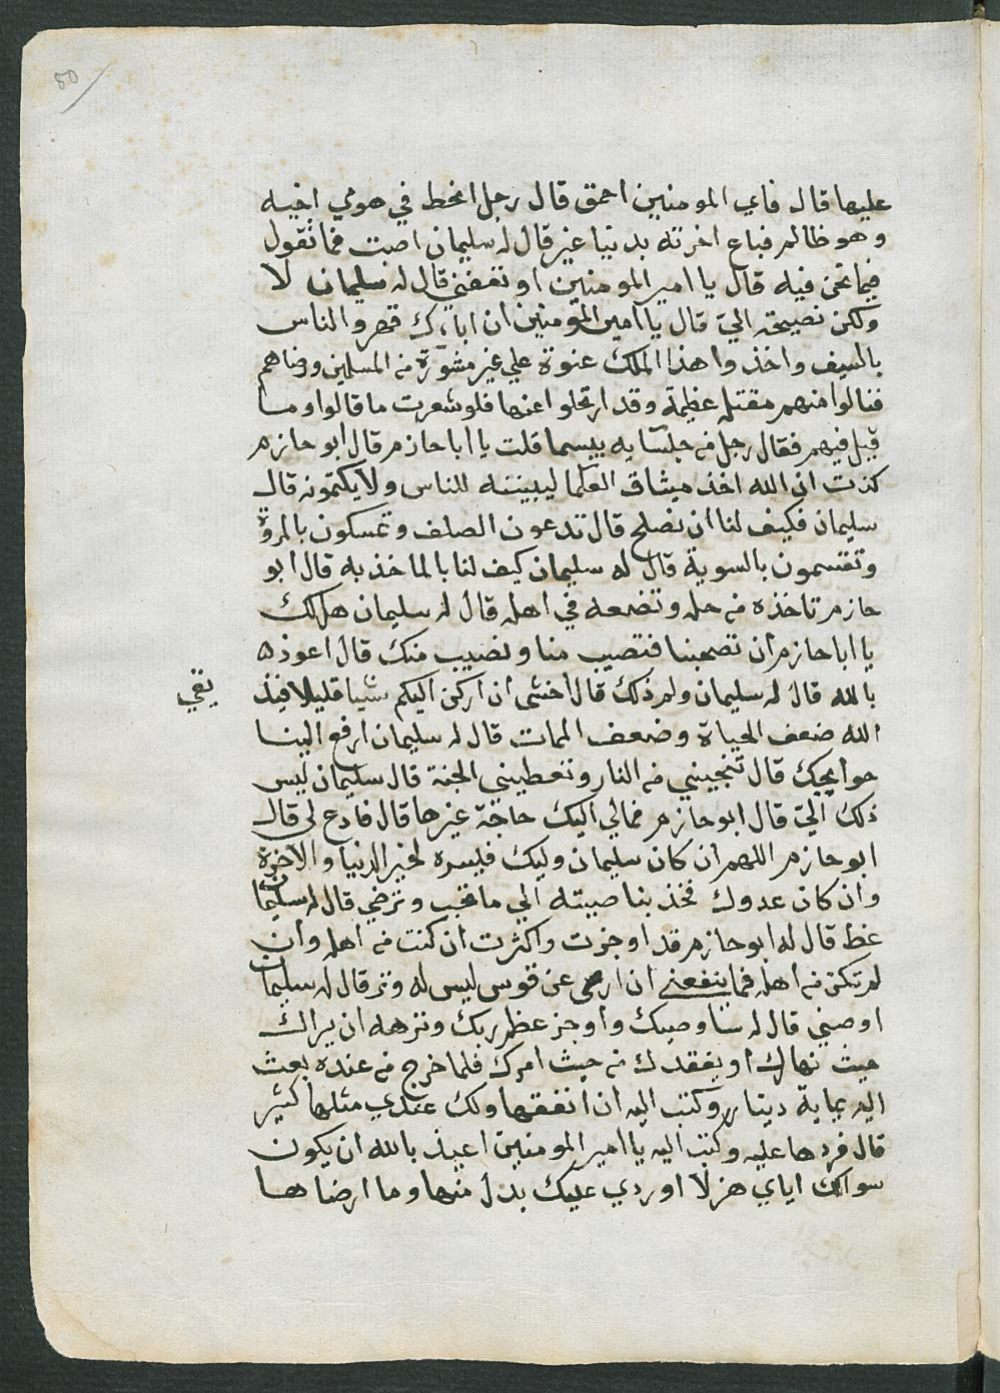 50
عليها قال فاي المومنين احمق قال رجل انحط في هوي اخيه
وهو ظالم فباع اخرته بدنيا غيره قال له سليمان اصبت فما تقول
فيما نحن فيه قال يا امير المومنين او تعفني قال له سليمان لا
ولكن نصيحة الي قال يا امير المومنين ان اباءك قهروا الناس
بالسيف واخذوا هذا الملك عنوة علي غير مشورة من المسلمين ورضاهم
فنالوا منهم مقتلة عظيمة وقد ارتحلوا عنها فلو شعرت ما قالوا وما
قيل فيهم فقال رجل من جلسايه بيسما قلت يا ابا حازم قال ابو حازم
كذبت ان الله اخذ ميثاق العلما ليبيننه للناس ولا يكتمونه قال
سليمان فكيف لنا ان نصلح قال تدعون الصلف وتمسكون بالمروة
وتقتسمون بالسوية قال له سليمان كيف لنا بالماخذ به قال ابو
حازم تاخذه من حله وتضعه في اهله قال له سليمان هل لك
يا ابا حازم ان تصحبنا فتصيب منا ونصيب منك قال اعوذ
بالله قال له سليمان ولم ذلك قال اخشى ان اركن اليكم شيا قليلا فيذ
يقني
الله ضعف الحياة وضعف الممات قال له سليمان ارفع الينا
حوايجك قال تنجيني من النار وتعطيني الجنة قال سليمان ليس
ذلك الي قال ابو حازم فمالي اليك حاجة غيرها قال فادع لي قال
ابو حازم اللهم ان كان سليمان وليك فيسره لخير الدنيا والاخرة
وان كان عدوك فخذ بناصيته الي ما تحب وترضي قال له سليمان
عظ قال له ابو حازم قد اوجزت واكثرت ان كنت من اهله وان
لم تكن من اهله فما ينفعني ان ارمي عن قوس ليس له وتر قال له سليمان
اوصني قال له ساوصيك واوجز عظم ربك ونزهه ان يراك
حيث نهاك او يفقدك من حيث امرك فلما خرج من عنده بعث
اليه بماية دينار وكتب اليه ان انفقها ولك عندي مثلها كثير
قال فردها عليه وكتب اليه يا امير المومنين اعيذ بالله ان يكون
سوالك اياي هزلا او ردي عليك بذلا منها وما ارضاها